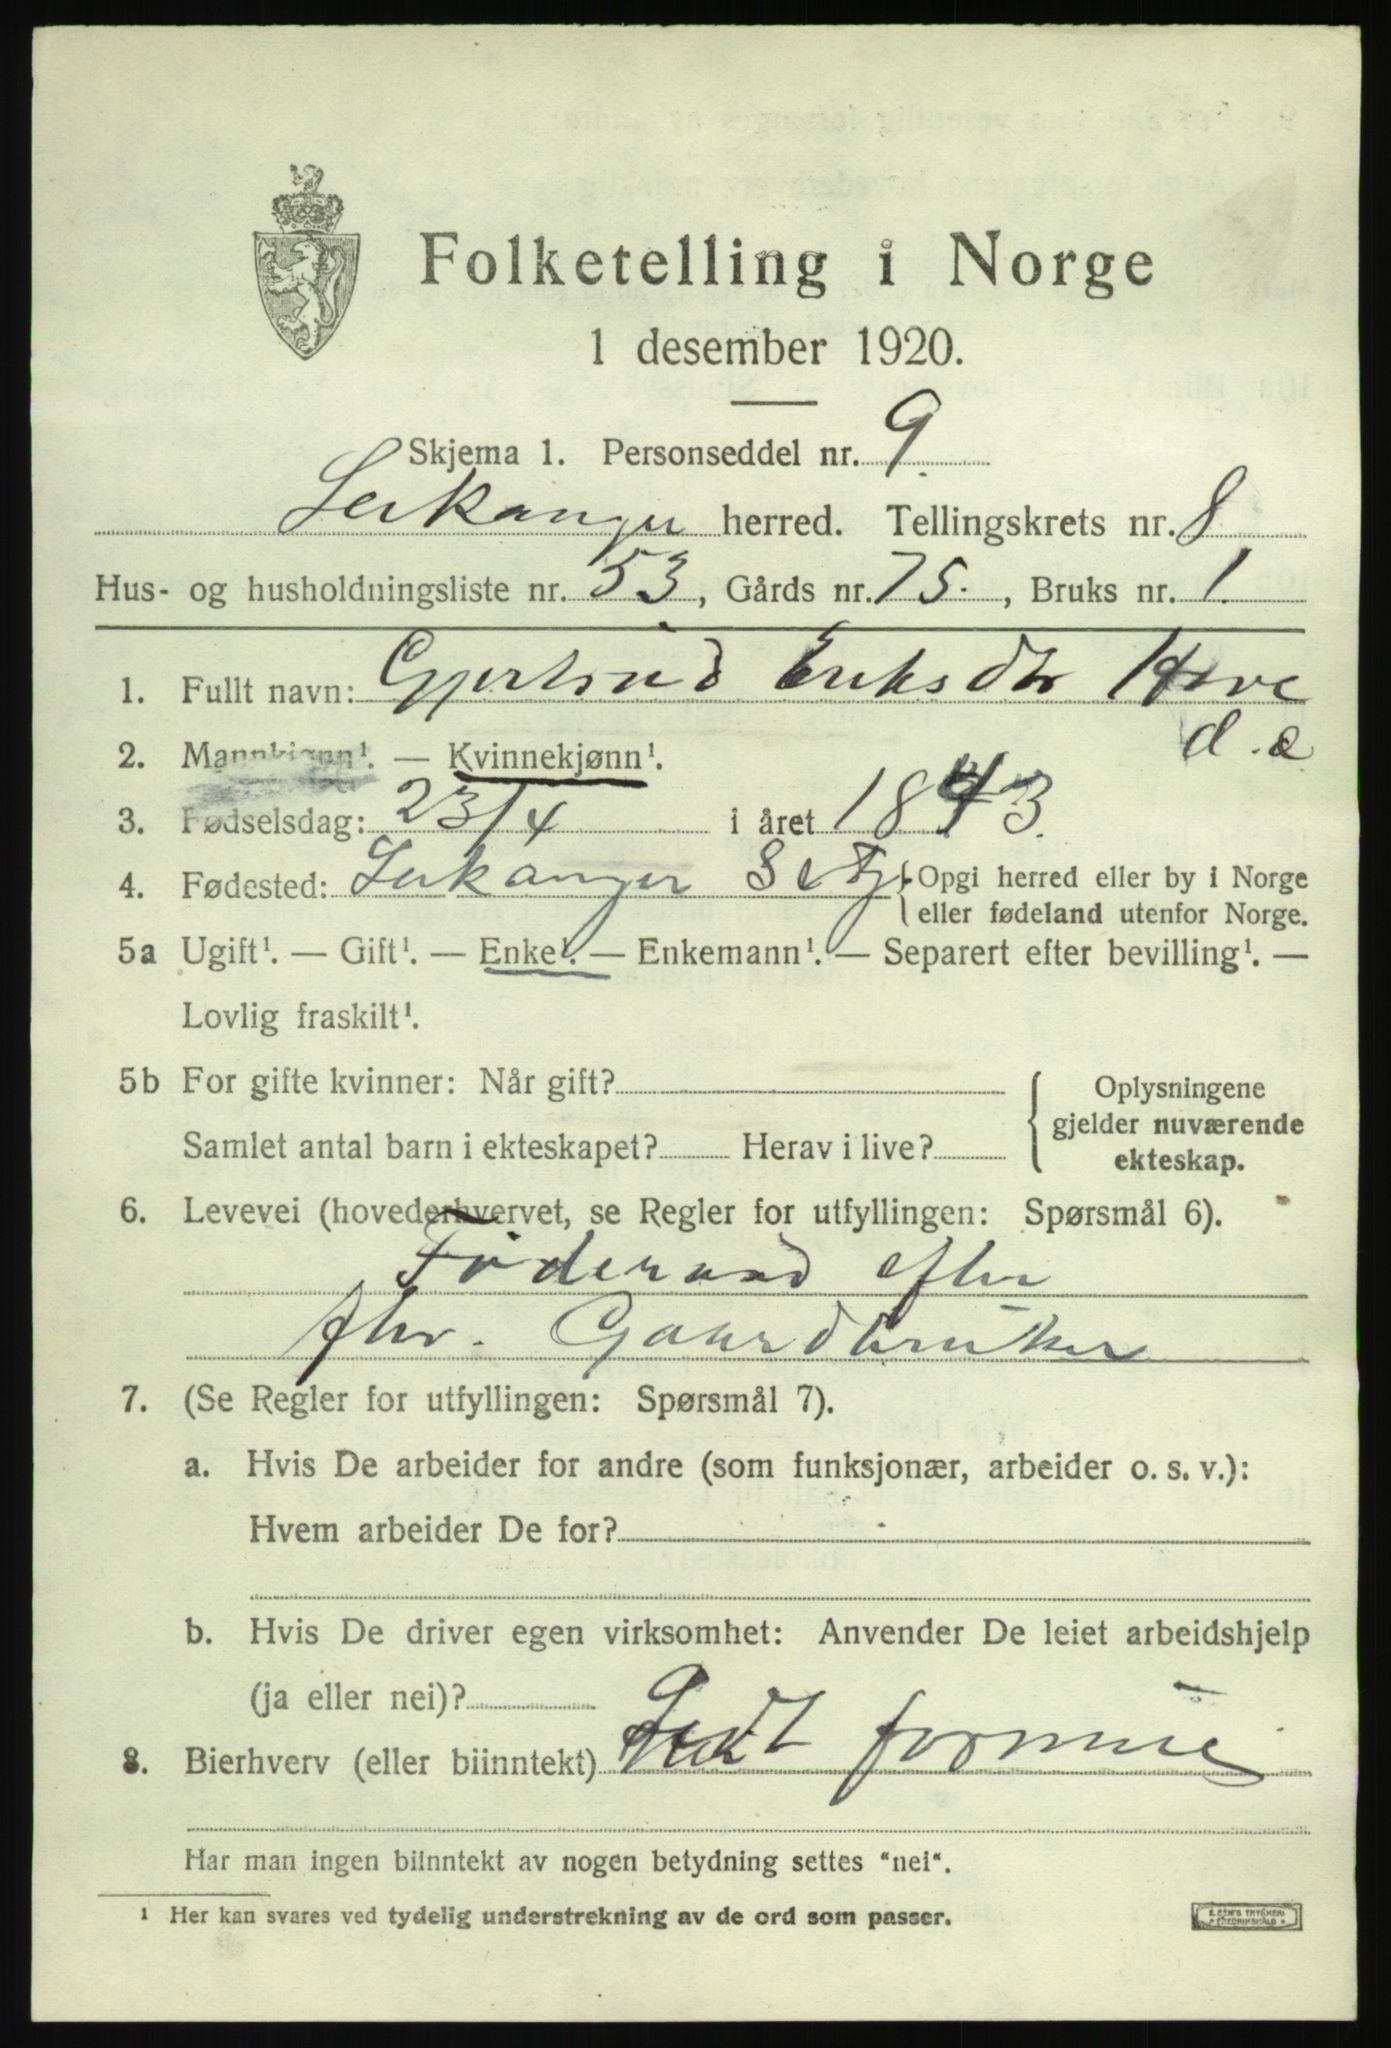 Folketelling i Norge
1 desember 1920.
Skjema 1. Personseddel nr. 9.
Leikanger herred. Tellingskrets nr. 8
Hus- og husholdningsliste nr. 53, Gårds nr. 75., Bruks nr. 1.
1. Fullt navn: Gjertrud Eriksdtr Hove
d. e
2. Mannkjønn¹. — Kvinnekjønn¹.
3. Fødselsdag: 23/4 i året 1843.
4. Fødested: Leikanger {Opgi herred eller by i Norge
eller fødeland utenfor Norge.
5a Ugift¹. — Gift¹. — Enke¹. — Enkemann¹. — Separert efter bevilling¹. —
Lovlig fraskilt¹.
5b For gifte kvinner: Når gift?
Samlet antal barn i ekteskapet? Herav i live?
{ Oplysningene
gjelder nuværende
ekteskap.
6. Levevei (hovederhvervet, se Regler for utfyllingen: Spørsmål 6).
Føderaad efter
fhv. Gaardbruker
7. (Se Regler for utfyllingen: Spørsmål 7).
a. Hvis De arbeider for andre (som funksjonær, arbeider o. s. v.):
Hvem arbeider De for?
b. Hvis De driver egen virksomhet: Anvender De leiet arbeidshjelp
(ja eller nei)?
8. Bierhverv (eller biinntekt) formue
Har man ingen biinntekt av nogen betydning settes "nei".
¹ Her kan svares ved tydelig understrekning av de ord som passer.